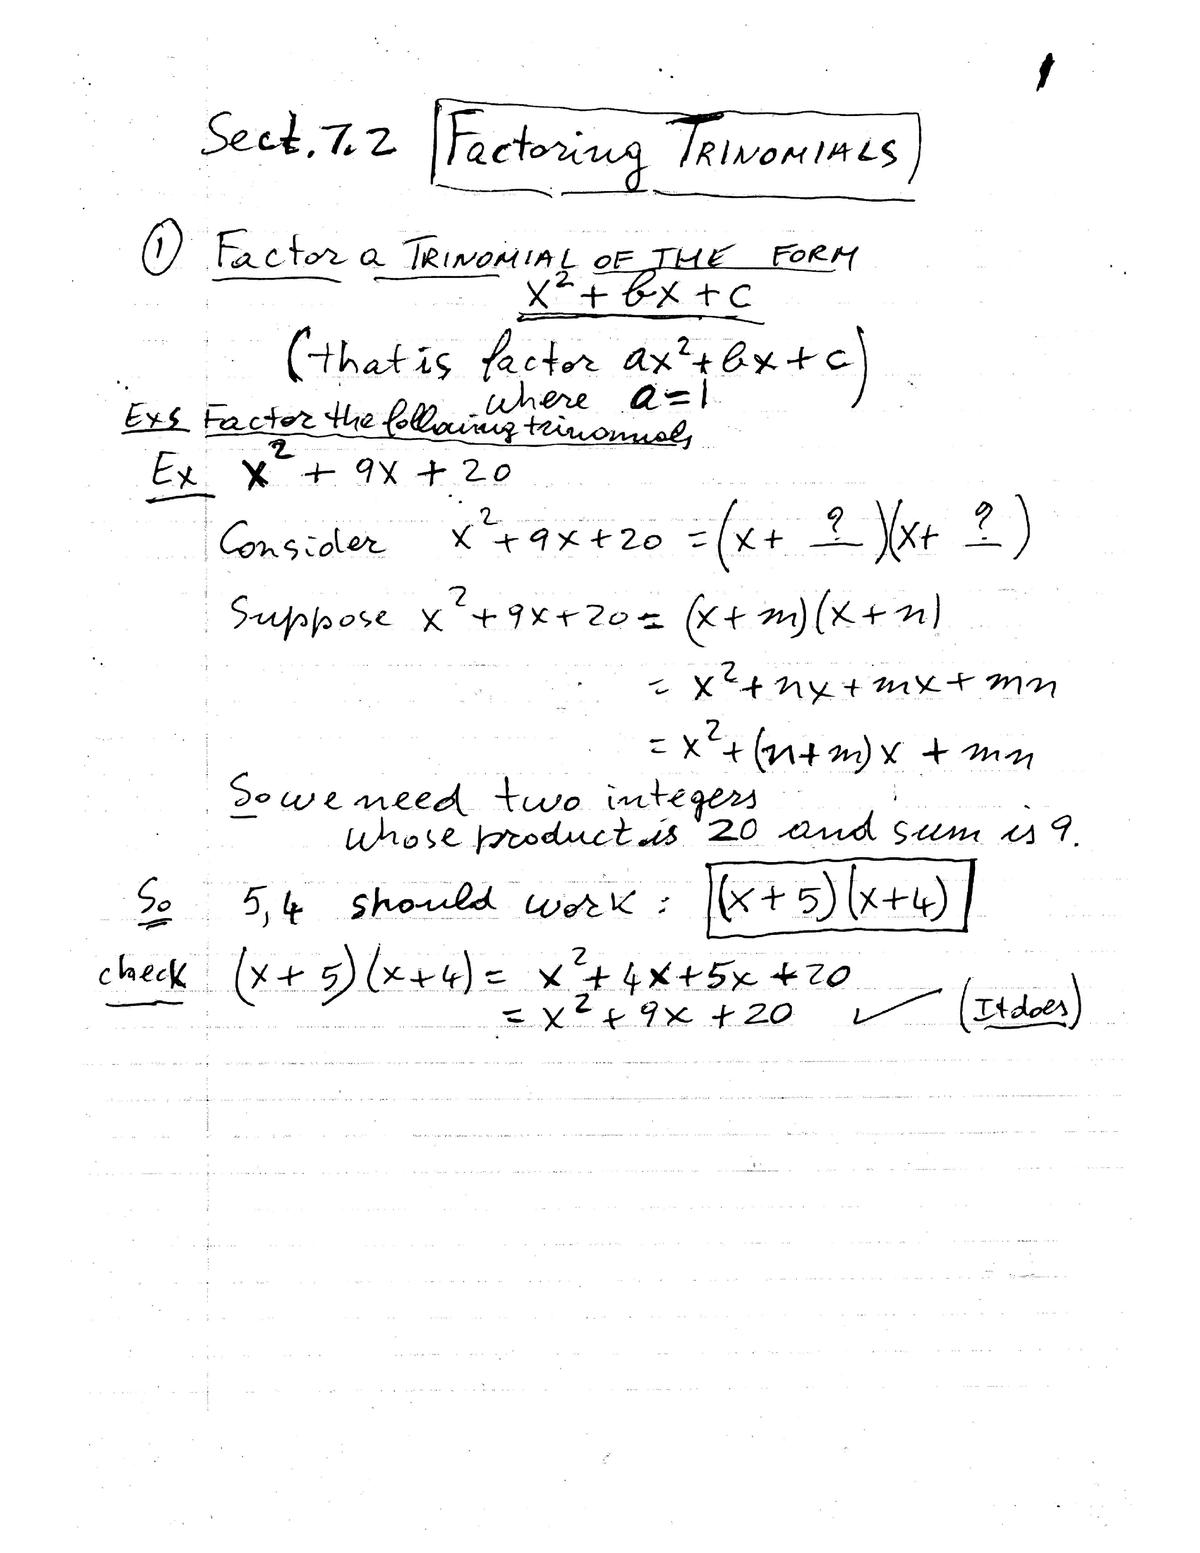 1
Sect. 7.2 Factoring TRINOMIALS
① Factor a TRINOMIAL OF THE FORM
x² + bx + c
(that is factor ax² + bx + c)
where a = 1
Exs Factor the following trinomials
Ex x² + 9x + 20
Consider x² + 9x + 20 = (x + ?)(x + ?)
Suppose x² + 9x + 20 = (x + m)(x + n)
= x² + nx + mx + mn
= x² + (n + m)x + mn
So we need two integers
whose product is 20 and sum is 9.
So 5, 4 should work : (x + 5)(x + 4)
check (x + 5)(x + 4) = x² + 4x + 5x + 20
= x² + 9x + 20 ✓ (It does)